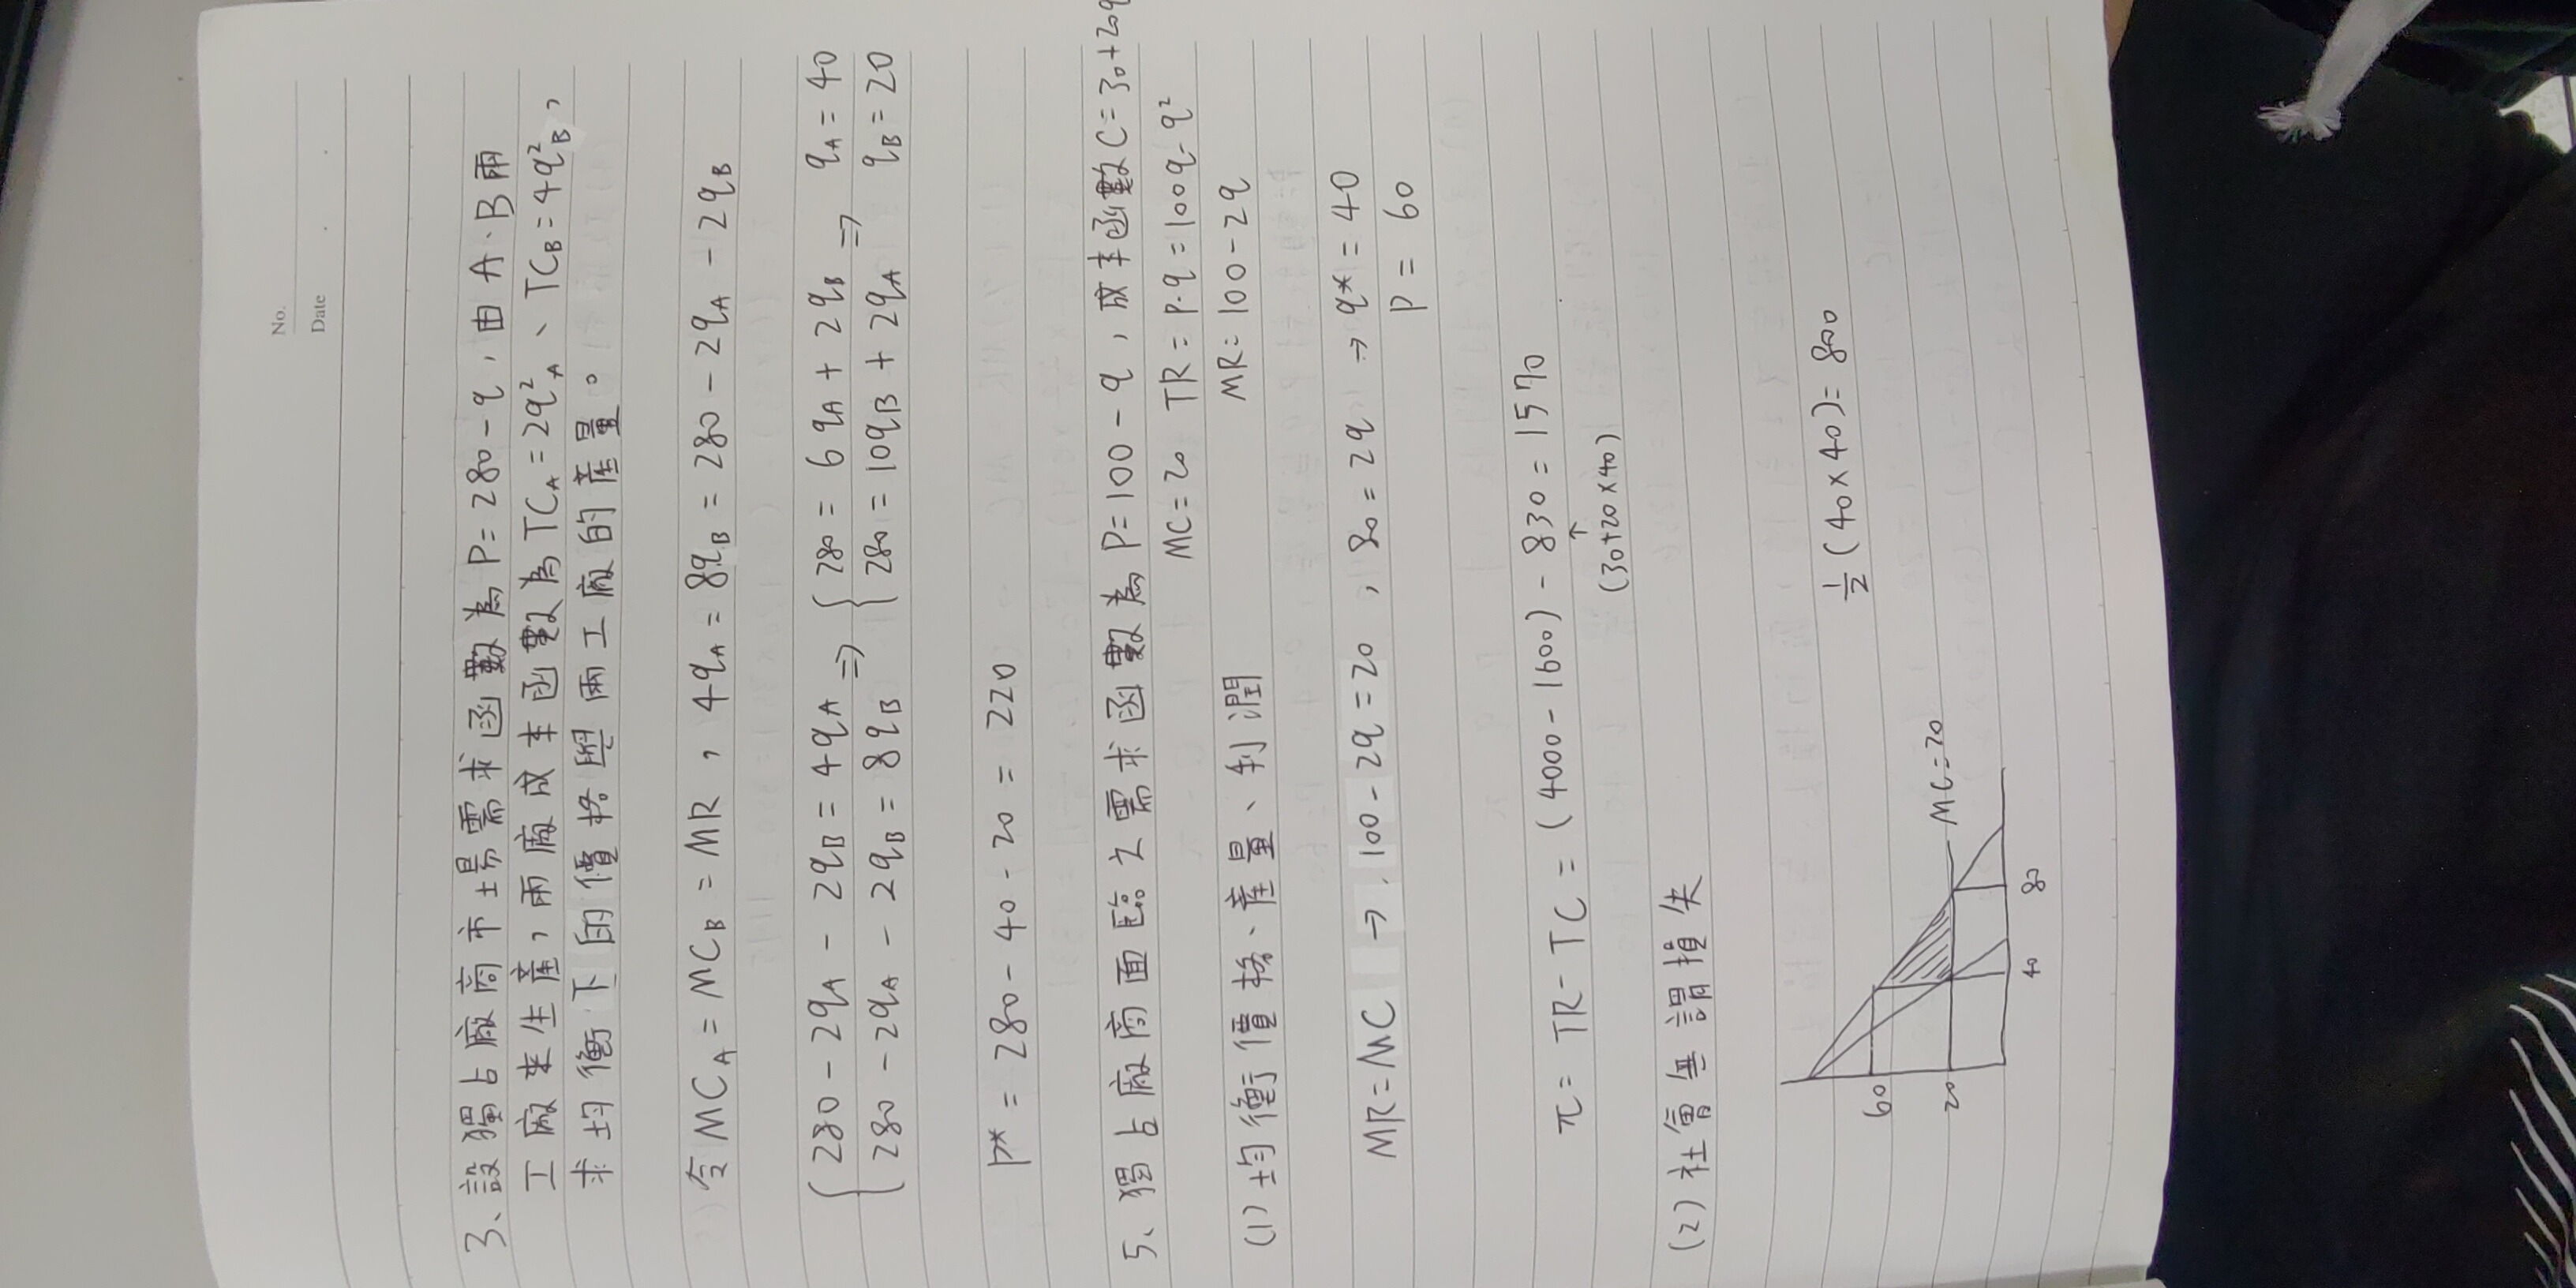 No.
Date
3、設獨占廠商市場需求函數為 P = 280 - q , 由 A、B 兩
工廠來生產,兩廠成本函數為 TC_A = 2q_A^2 、 TC_B = 4q_B^2 ,
求均衡下的價格與兩工廠的產量。
令 MC_A = MC_B = MR , 4q_A = 8q_B = 280 - 2q_A - 2q_B
{ 280 - 2q_A - 2q_B = 4q_A ⇒ { 280 = 6q_A + 2q_B ⇒ q_A = 40
280 - 2q_A - 2q_B = 8q_B 280 = 10q_B + 2q_A q_B = 20
P* = 280 - 40 - 20 = 220
5、獨占廠商面臨之需求函數為 P = 100 - q , 成本函數 C = 30 + 20q
MC = 20 TR = P·q = 100q - q²
(1) 均衡價格、產量、利潤 MR = 100 - 2q
MR = MC → 100 - 2q = 20 , 80 = 2q → q* = 40
P = 60
π = TR - TC = (4000 - 1600) - 830 = 1570
↑
(30+20×40)
(2) 社會無謂損失
1/2 (40×40) = 800
60
20 MC = 20
40 80